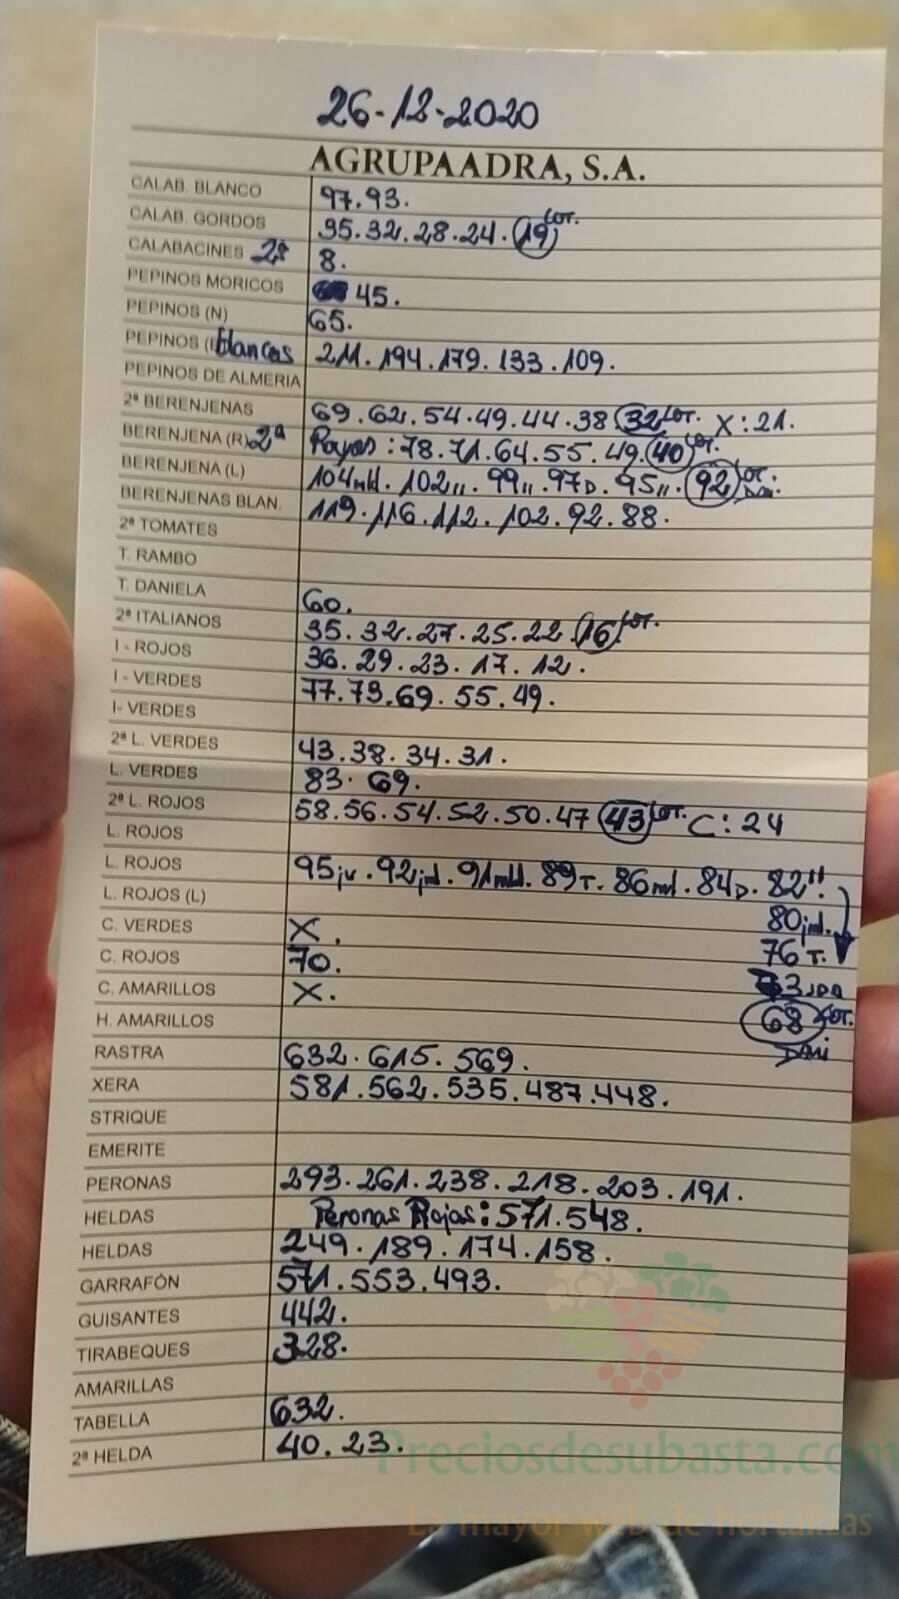 26-12-2020
AGRUPAADRA, S.A.
CALAB. BLANCO 97.93.
CALAB. GORDOS 35.32.28.24.19 COT.
CALABACINES 2ª 8.
PEPINOS MORICOS 45.
PEPINOS (N) 65.
PEPINOS ( blancos 211.194.179.133.109.
PEPINOS DE ALMERIA
2ª BERENJENAS 69.62.54.49.44.38 32 COT. X:21.
BERENJENA (R) 2ª Rayas: 78.71.64.55.49.40 COT.
BERENJENA (L) 104 mld. 102 ". 99 ". 97 D. 95 ". 92 COT. Dani
BERENJENAS BLAN. 119.116.112.102.92.88.
2ª TOMATES
T. RAMBO
T. DANIELA 60.
2ª ITALIANOS 35.32.27.25.22.16 COT.
I - ROJOS 36.29.23.17.12.
I - VERDES 77.73.69.55.49.
I- VERDES
2ª L. VERDES 43.38.34.31.
L. VERDES 83.69.
2ª L. ROJOS 58.56.54.52.50.47 43 COT. C:24
L. ROJOS
L. ROJOS 95 jv. 92 jml. 91 mld. 89 T. 86 ml. 84 D. 82 ".
L. ROJOS (L) 80 jml.
C. VERDES X.
C. ROJOS 70. 76 T.
C. AMARILLOS X.
H. AMARILLOS 68 COT.
RASTRA 632.615.569. Dani
XERA 581.562.535.487.448.
STRIQUE
EMERITE
PERONAS 293.261.238.218.203.191.
HELDAS Peronas Rojas: 571.548.
HELDAS 249.189.174.158.
GARRAFÓN 571.553.493.
GUISANTES 442.
TIRABEQUES 328.
AMARILLAS
TABELLA 632.
2ª HELDA 40.23.
Preciosdesubasta.com
La mayor web de hortalizas